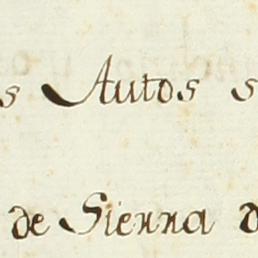 s Autos s
de Sienna d